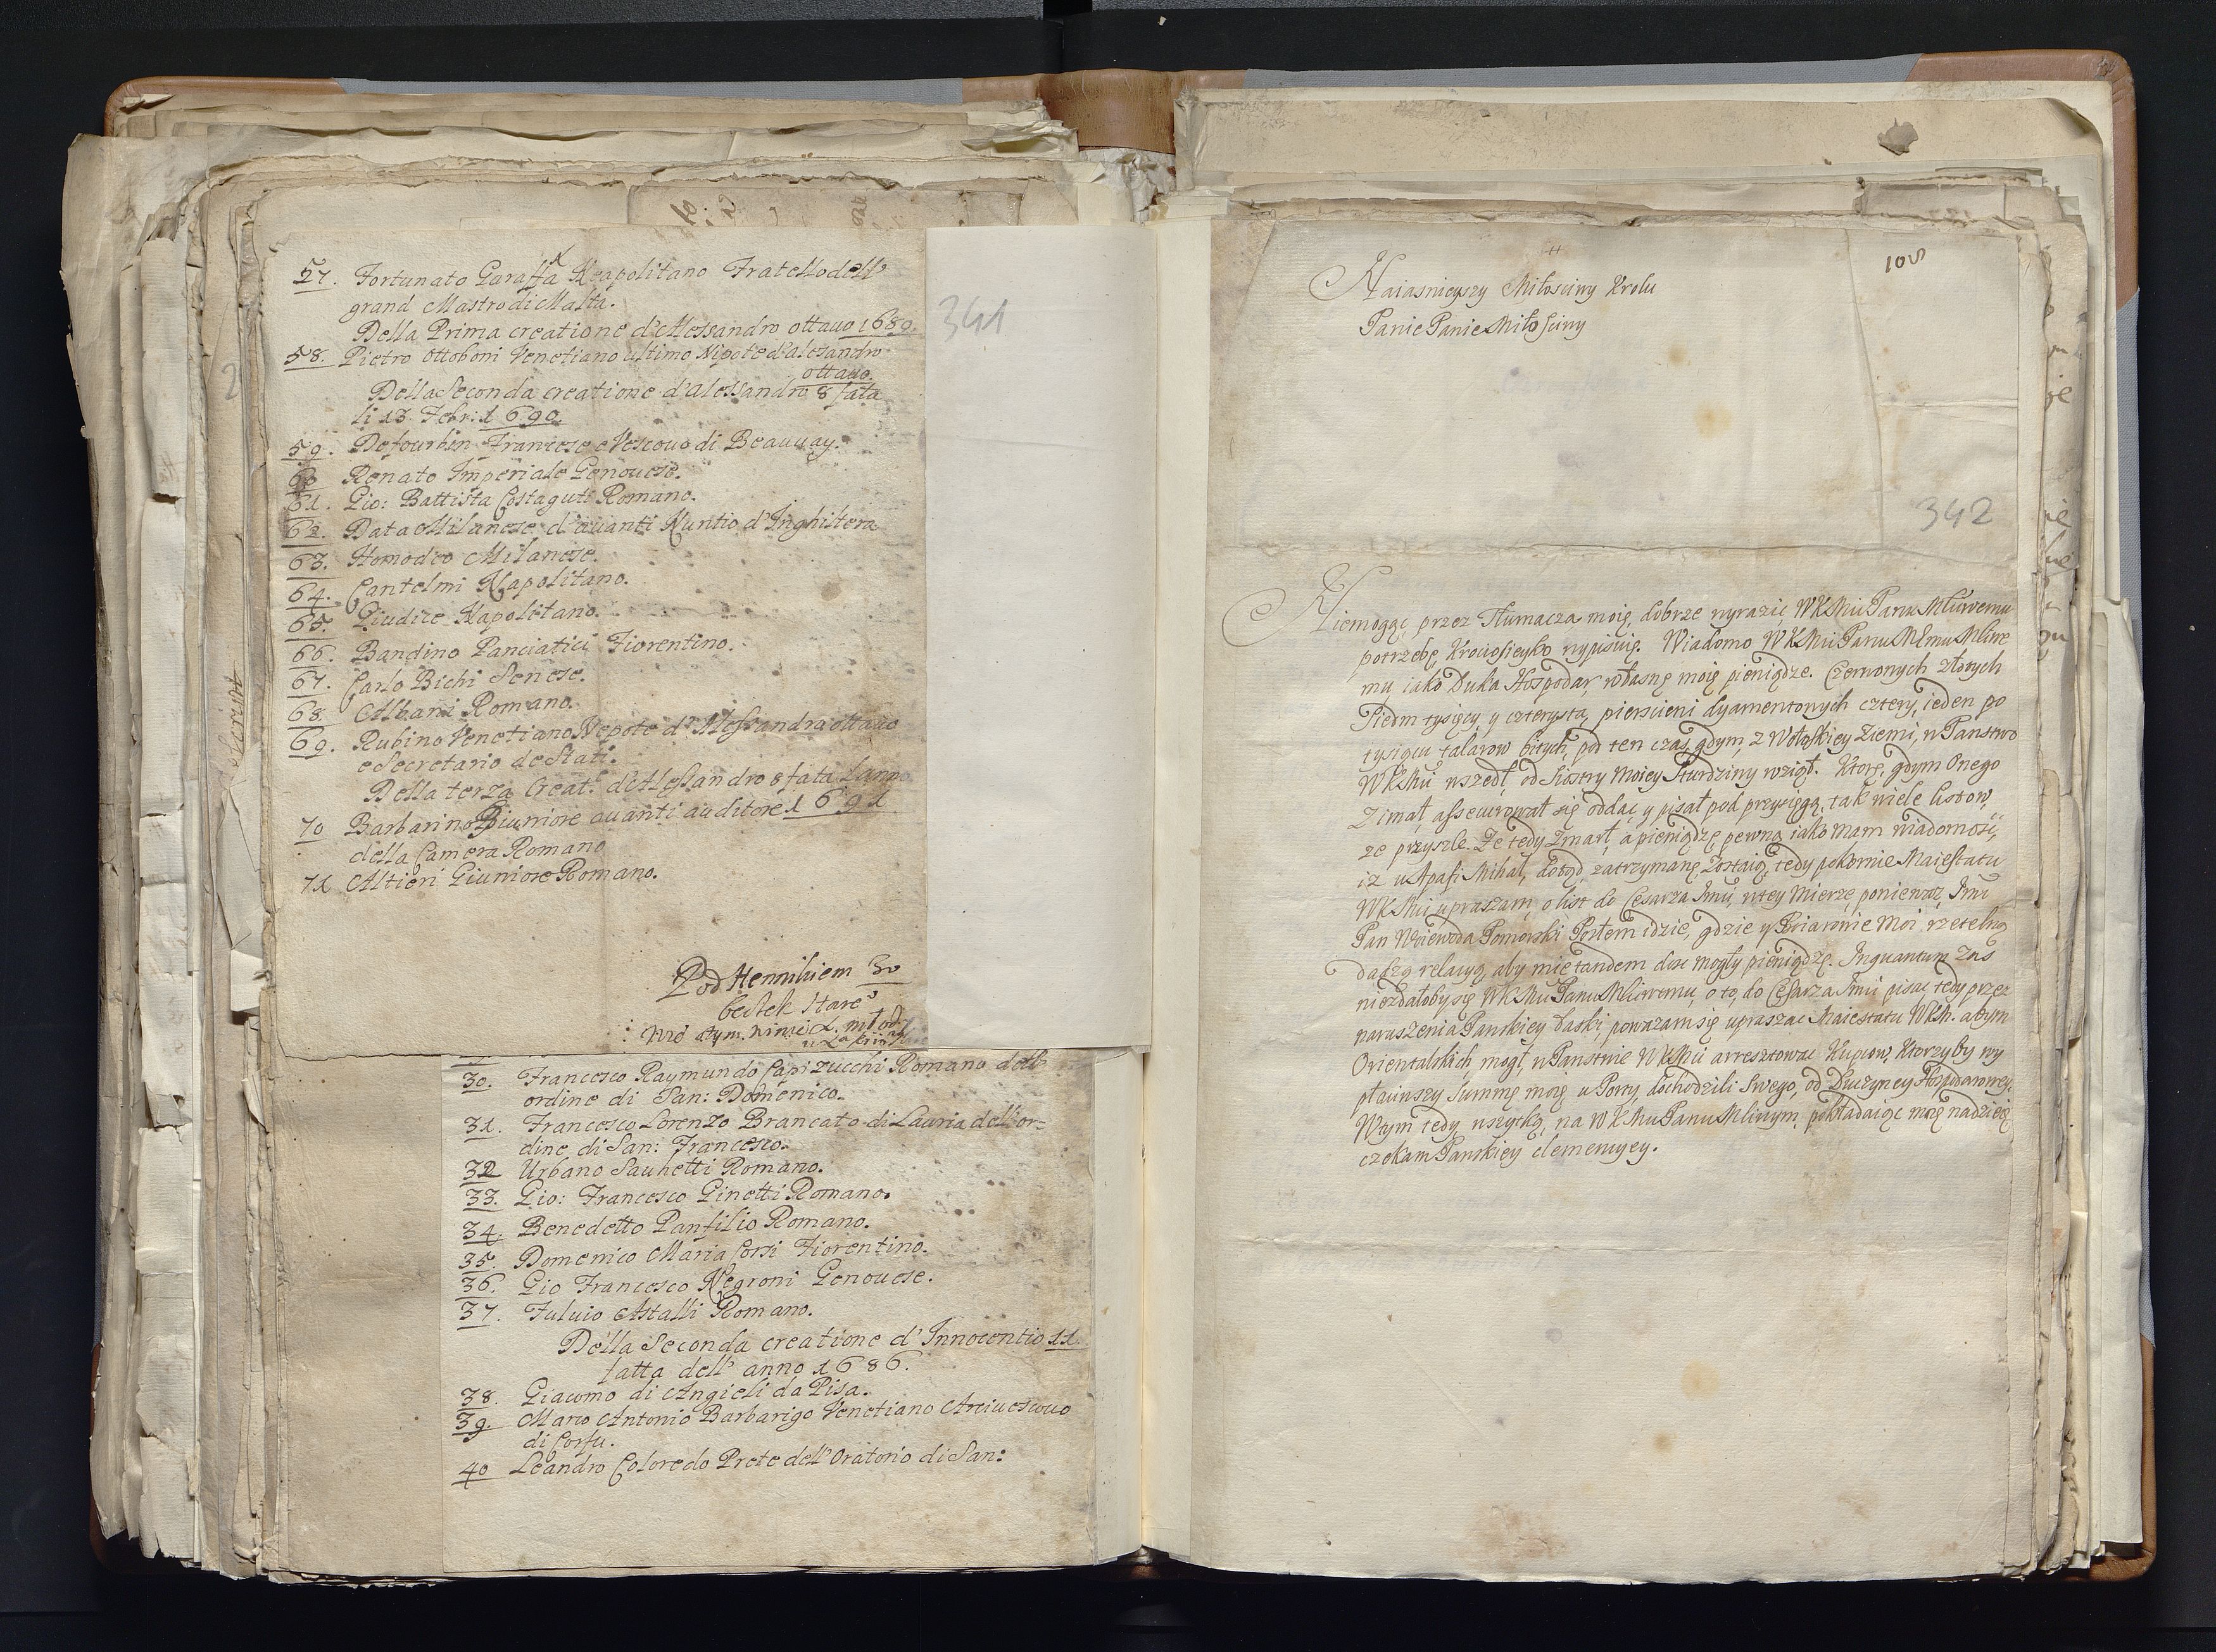 57. Fortunato Caraffa Neapolitano Fratello dell'
grand Mastro di Malta.
Della Prima creatione d'Alessandro ottauo 1689.
58. Pietro Ottoboni Venetiano ultimo Nipote d'alesandro
ottauo.
Della Seconda creatione d'Alessandro 8 fata
li 13 Febr: 1690.
59. De fourbin Francese e Vescouo di Beauuay.
60 Renato Imperiale Genouese.
61. Gio: Battista Costaguti Romano.
62. Data Milanese d'auanti Nuntio d'Inghiltera
63. Homodeo Milanese.
64. Cantelmi Napolitano.
65. Giudice Napolitano.
66. Bandino Panciatici Fiorentino.
67. Carlo Bichi Senese.
68. Albani Romano.
69. Rubino Venetiano Nepote d'Alessandro ottauo
e Secretario de Stati.
Della terza Creat. d'Alessandro 8 fata l'anno
70 Barbarino Giuniore auanti auditore 1691
della Camera Romano
71 Altieri Giuniore Romano.
Pod Hennikiem 30
beczek stare
341
30. Francesco Raymundo Capizucchi Romano dell'
ordine di San: Domenico.
31. Francesco Lorenzo Brancato di Lauria dell'or=
dine di San: Francesco.
32 Urbano Sachetti Romano.
33. Gio: Francesco Ginetti Romano.
34. Benedetto Panfilio Romano.
35. Domenico Maria Corsi Fiorentino.
36. Gio Francesco Negroni Genouese.
37. Fuluio Astalli Romano.
Della Seconda creatione d'Innocentio 11
fatta dell' anno 1686.
38. Giacomo di Angieli da Pisa.
39. Marco Antonio Barbarigo Venetiano Arciuescouo
di Corfu.
40 Leandro Coloredo Prete dell'Oratorio di San:
105
Naiasnieyszy Miłosciwy Krolu
Panie Panie Miłosciwy
342
Niemogąc przez Tłumacza moię, dobrze wyrazić, WKMci Panu Młciwemu
potrzebę, Krociosieyko wypisuię. Wiadomo WKMci Panu Memu Mliwe
mu, iako Duka Hospodar, własnę moię pieniądze. Czerwonych złotych
Siedm tysięcy, y czterysta, pierscieni dyamentowych cztery, ieden po
tysiącu talarow bitych, pod ten czas, gdym z Wołoskiey Ziemi, w Panstwo
WKMci wszedł, od Siostry Moiey Sturdziny wziął. Ktorę, gdym Onego
Zimał, assecurował się oddać, y pisał pod przysięgą, tak wiele listow,
ze przyszle. Ze tedy Zmarł, a pieniądze pewną iako mam wiadomość,
iz u Apafi Mihal, dotąd zatrzymanę, Zostaią, tedy pokornie Maiestatu
WKMci upraszam, o list do Cesarza Jmci, wtey Mierze, poniewaz, Jmci
Pan Woiewoda Pomorski Posłem idzie, gdzie y Boiarowie Moi, rzetelną
daszą relacyą, aby mię tandem dosc mogły pieniądze. Inquantum Zas
niezdałoby się WKMci Panu Mliwemu, o to, do Cesarza Jmci pisac, tedy przez
naruszenia Panskiey Łaski, powazam się upraszac Maiestatu WKM. abym
Orientalskich, mogł, w Panstwie WKMci arresztowac Kupcow, Ktorzyby wy
płaciwszy Summę moię u Porty, dochodzili Swego, od Duczyney Hospodarowey.
Wtym tedy, wszytką, na WKMci Panu Mliwym, pokładaiąc moię nadzieię
czekam Panskiey clemencyey.